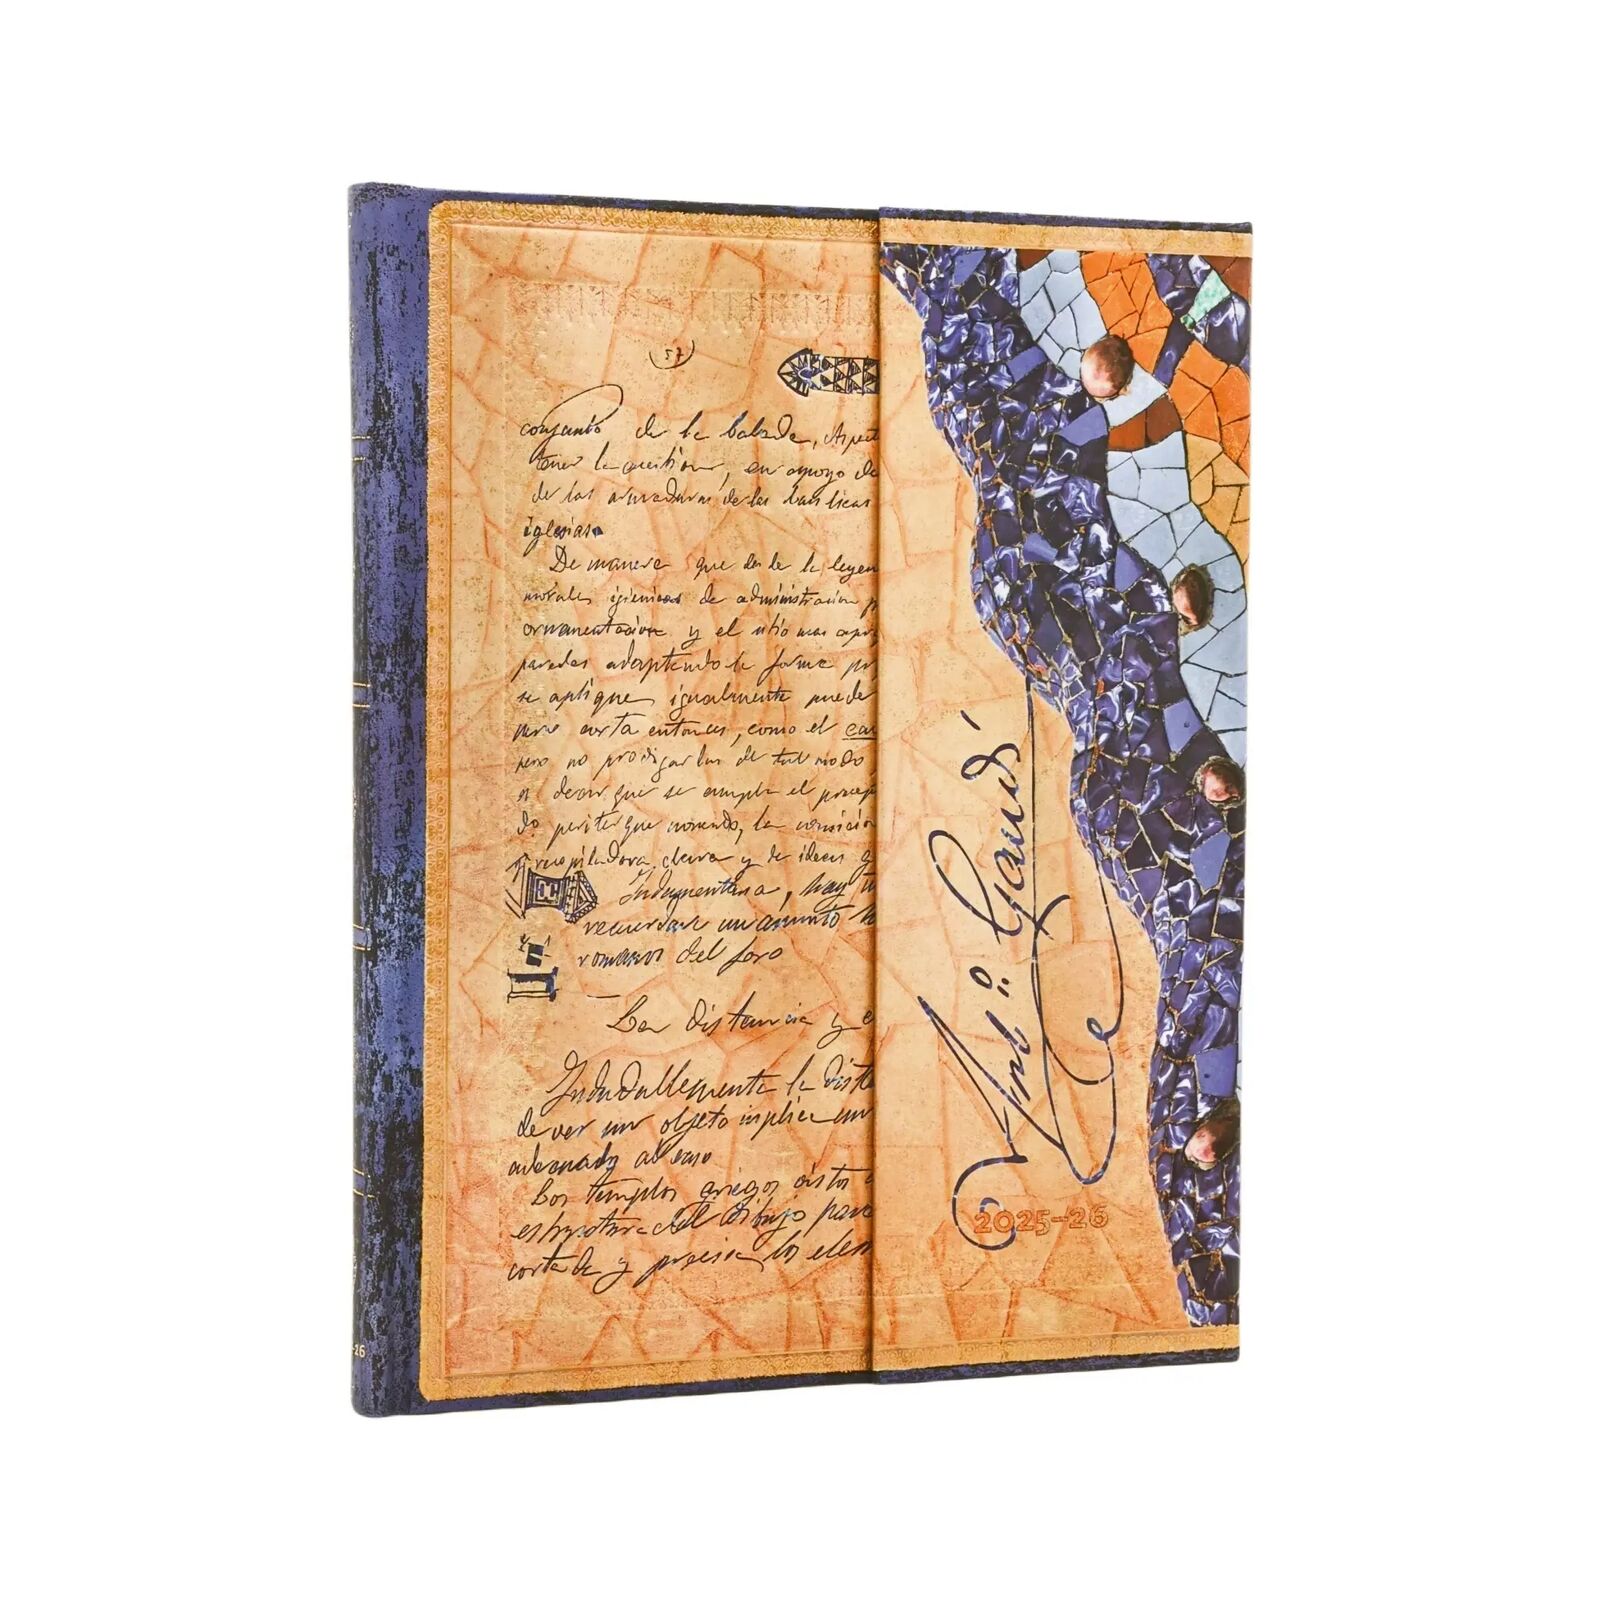 (57)
conjunto de la balada, Aspect
tener la cuestion, en apoyo de
de las armaduras de las basilicas
iglesias.
De manera que desde la leyen
morales igienicas de administracion p
ornamentacion y el sitio mas apro
paredes adaptando la forma pr
se aplique igualmente puede
corta entonces, como el ca
pero no prodigarlas de tal modo
decir que se cumpla el precep
do
recopiladora, clara y de ideas g
Indumentaria, hay tu
recuerdan un asunto
romanos del foro
La distancia y e
Indudablemente la dista
de ver un objeto implica un
adecuado al caso
Los templos griegos
estructura del dibujo, para
cortada y precisa los elem
Ant.º Gaudí
2025-26
-26